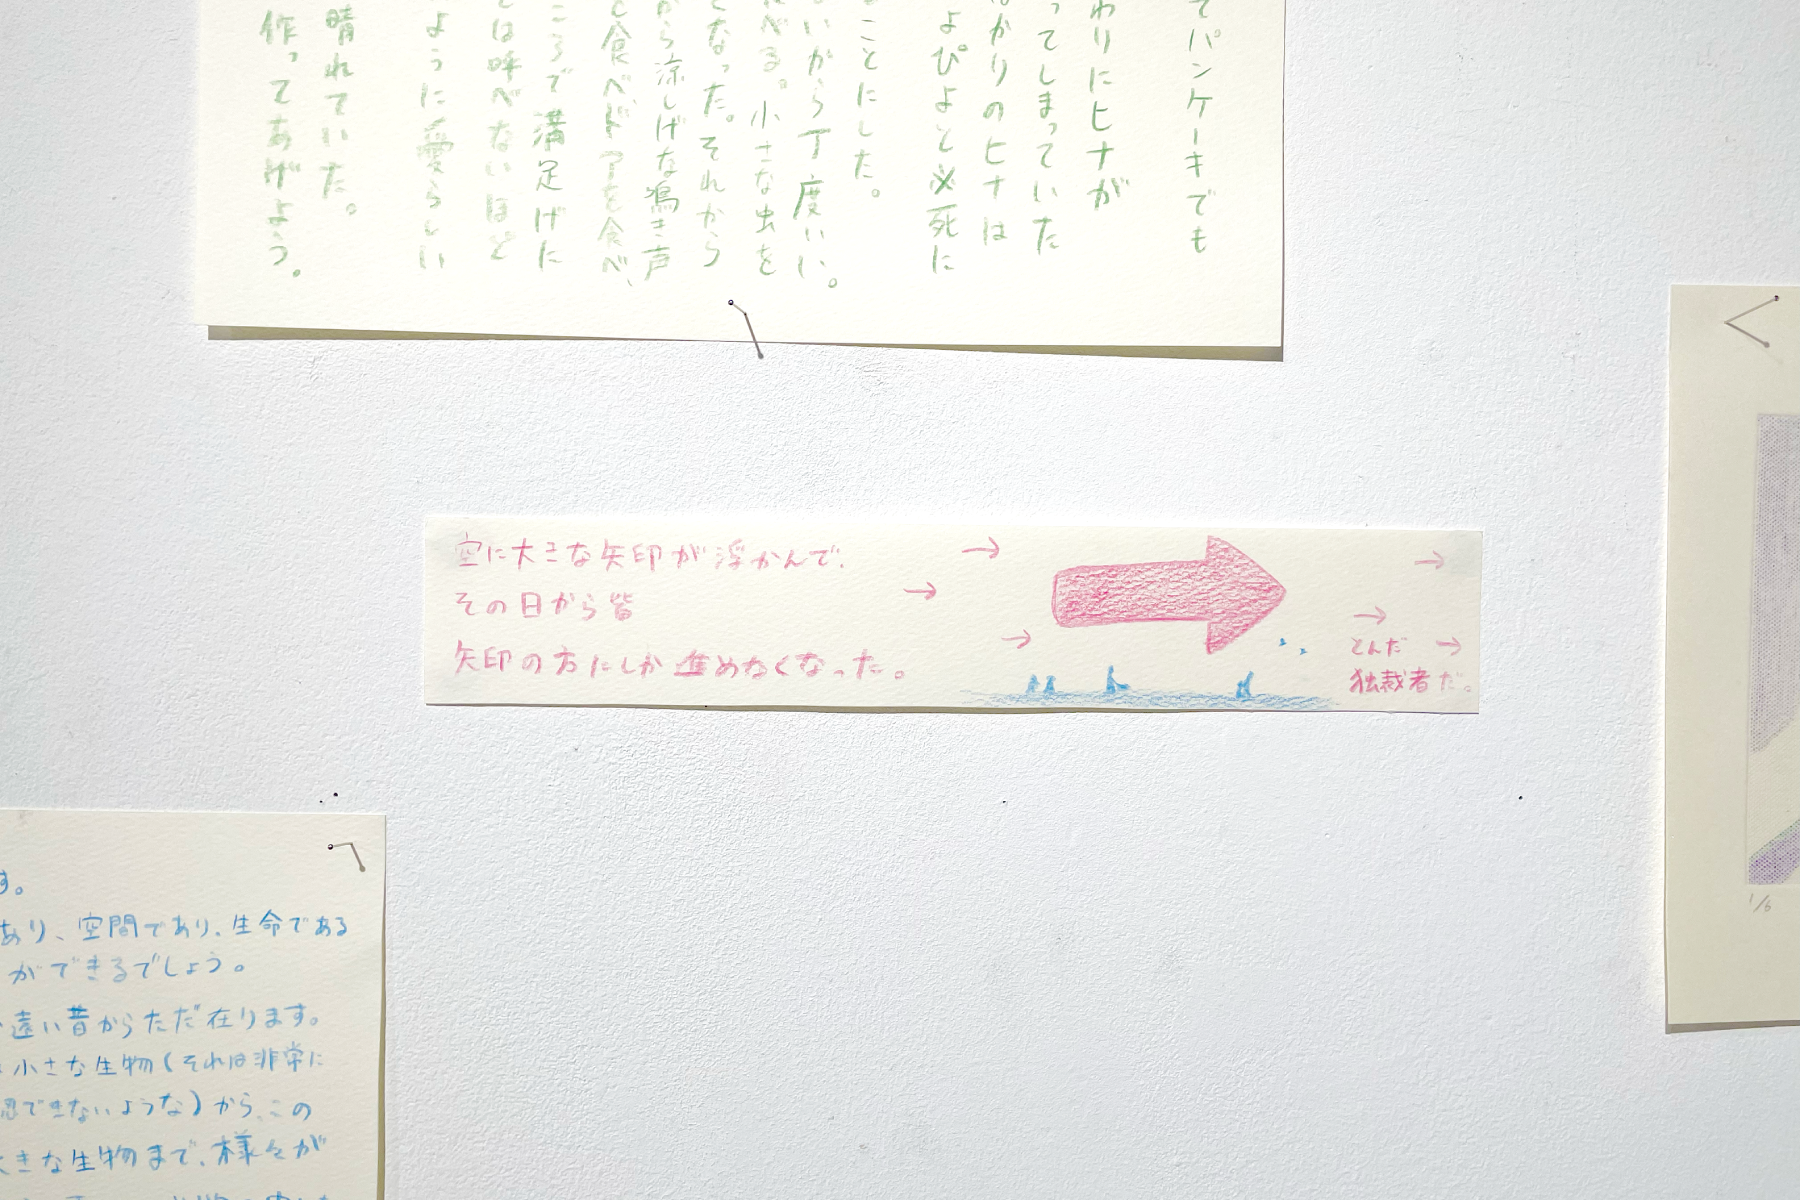 てパンケーキでも
わりにヒナが
ってしまっていた
かりのヒナは
よぴよと必死に
ことにした。
いから丁度いい。
べる。小さな虫を
なった。それから
から涼しげな鳴き声
と食べ、ドアを食べ、
ころで満足げた
は呼べないほど
ように愛らしい
晴れていた。
作ってあげよう。
空に大きな矢印が浮かんで、
その日から皆
矢印の方にしか進めなくなった。
→
→
→
→
→
とんだ →
独裁者だ。
す。
あり、空間であり、生命である
ができるでしょう。
遠い昔からただ在ります。
小さな生物(それは非常に
認できないような)から、この
大きな生物まで、様々が
1/6